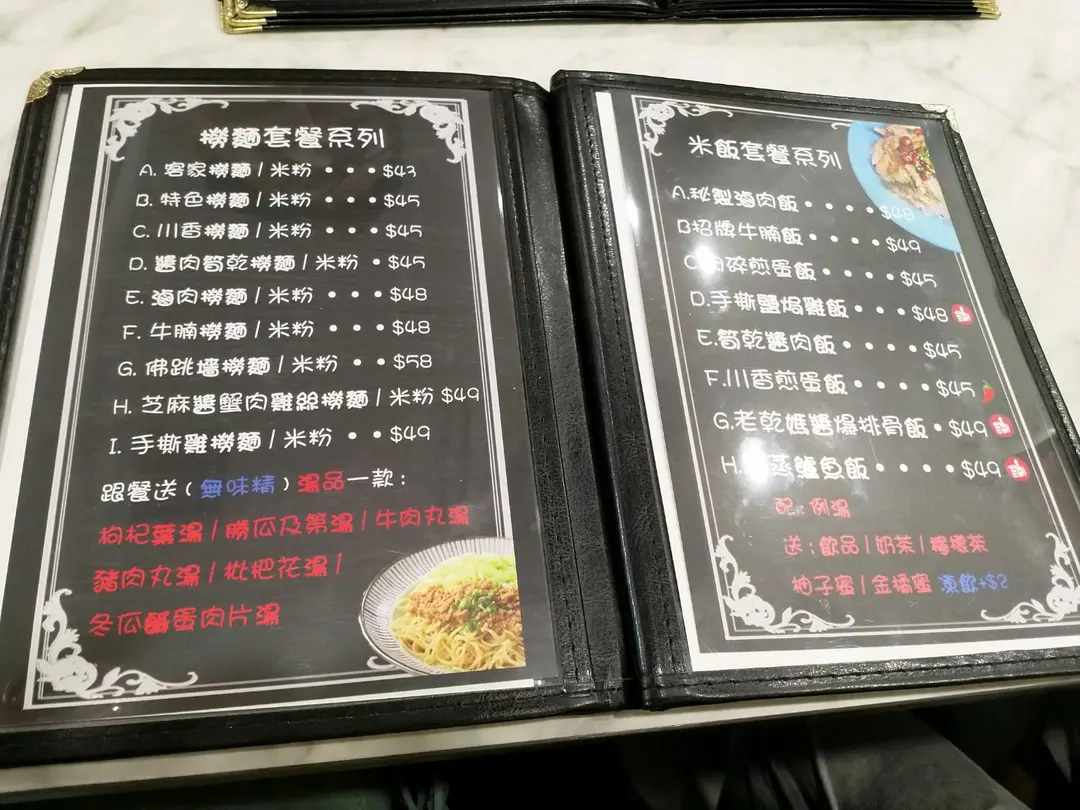 撈麵套餐系列
A. 客家撈麵 / 米粉 • • • $43
B. 特色撈麵 / 米粉 • • • $45
C. 川香撈麵 / 米粉 • • • $45
D. 醬肉筍乾撈麵 / 米粉 • $45
E. 滷肉撈麵 / 米粉 • • • $48
F. 牛腩撈麵 / 米粉 • • • $48
G. 佛跳墻撈麵 / 米粉 • • $58
H. 芝麻醬蟹肉雞絲撈麵 / 米粉 $49
I. 手撕雞撈麵 / 米粉 • • $49
跟餐送 ( 無味精 ) 湯品一款 :
枸杞葉湯 / 勝瓜及第湯 / 牛肉丸湯
豬肉丸湯 / 枇杷花湯 /
冬瓜鹹蛋肉片湯
米飯套餐系列
A.秘製滷肉飯 • • • • $48
B招牌牛腩飯 • • • • $49
C肉碎煎蛋飯 • • • • $45
D.手撕鹽焗雞飯 • • • $48
E.筍乾醬肉飯 • • • • $45
F.川香煎蛋飯 • • • • $45
G.老乾媽醬爆排骨飯 • $49
H. 蒸鱸魚飯 • • • • $49
配 例湯
送 : 飲品 / 奶茶 / 檸檬茶
柚子蜜 / 金橘蜜 凍飲+$2